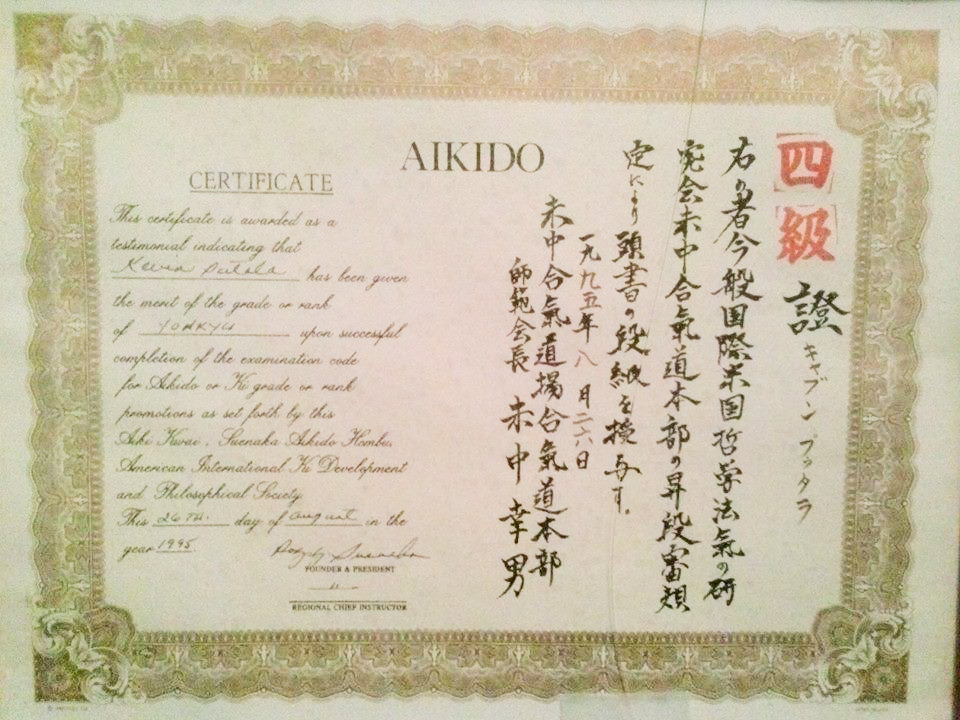 AIKIDO
CERTIFICATE
This certificate is awarded as a
testimonial indicating that
Kevin has been given
the merit of the grade or rank
of YONKYU upon successful
completion of the examination code
for Aikido or Ki grade or rank
promotions as set forth by this
Aiki Kwai, Suenaka Aikido Hombu,
American International Ki Development
and Philosophical Society
This 26TH. day of August in the
year 1995
Roddy Suenaka
FOUNDER & PRESIDENT
"
REGIONAL CHIEF INSTRUCTOR
四級
證
キャブン プッタラ
右の者今般国際米国哲学法氣の研
究会末中合氣道本部の昇段審類
定により頭書の段級を授与す。
一九九五年八月二六日
末中合氣道場合氣道本部
師範会長 末中幸男